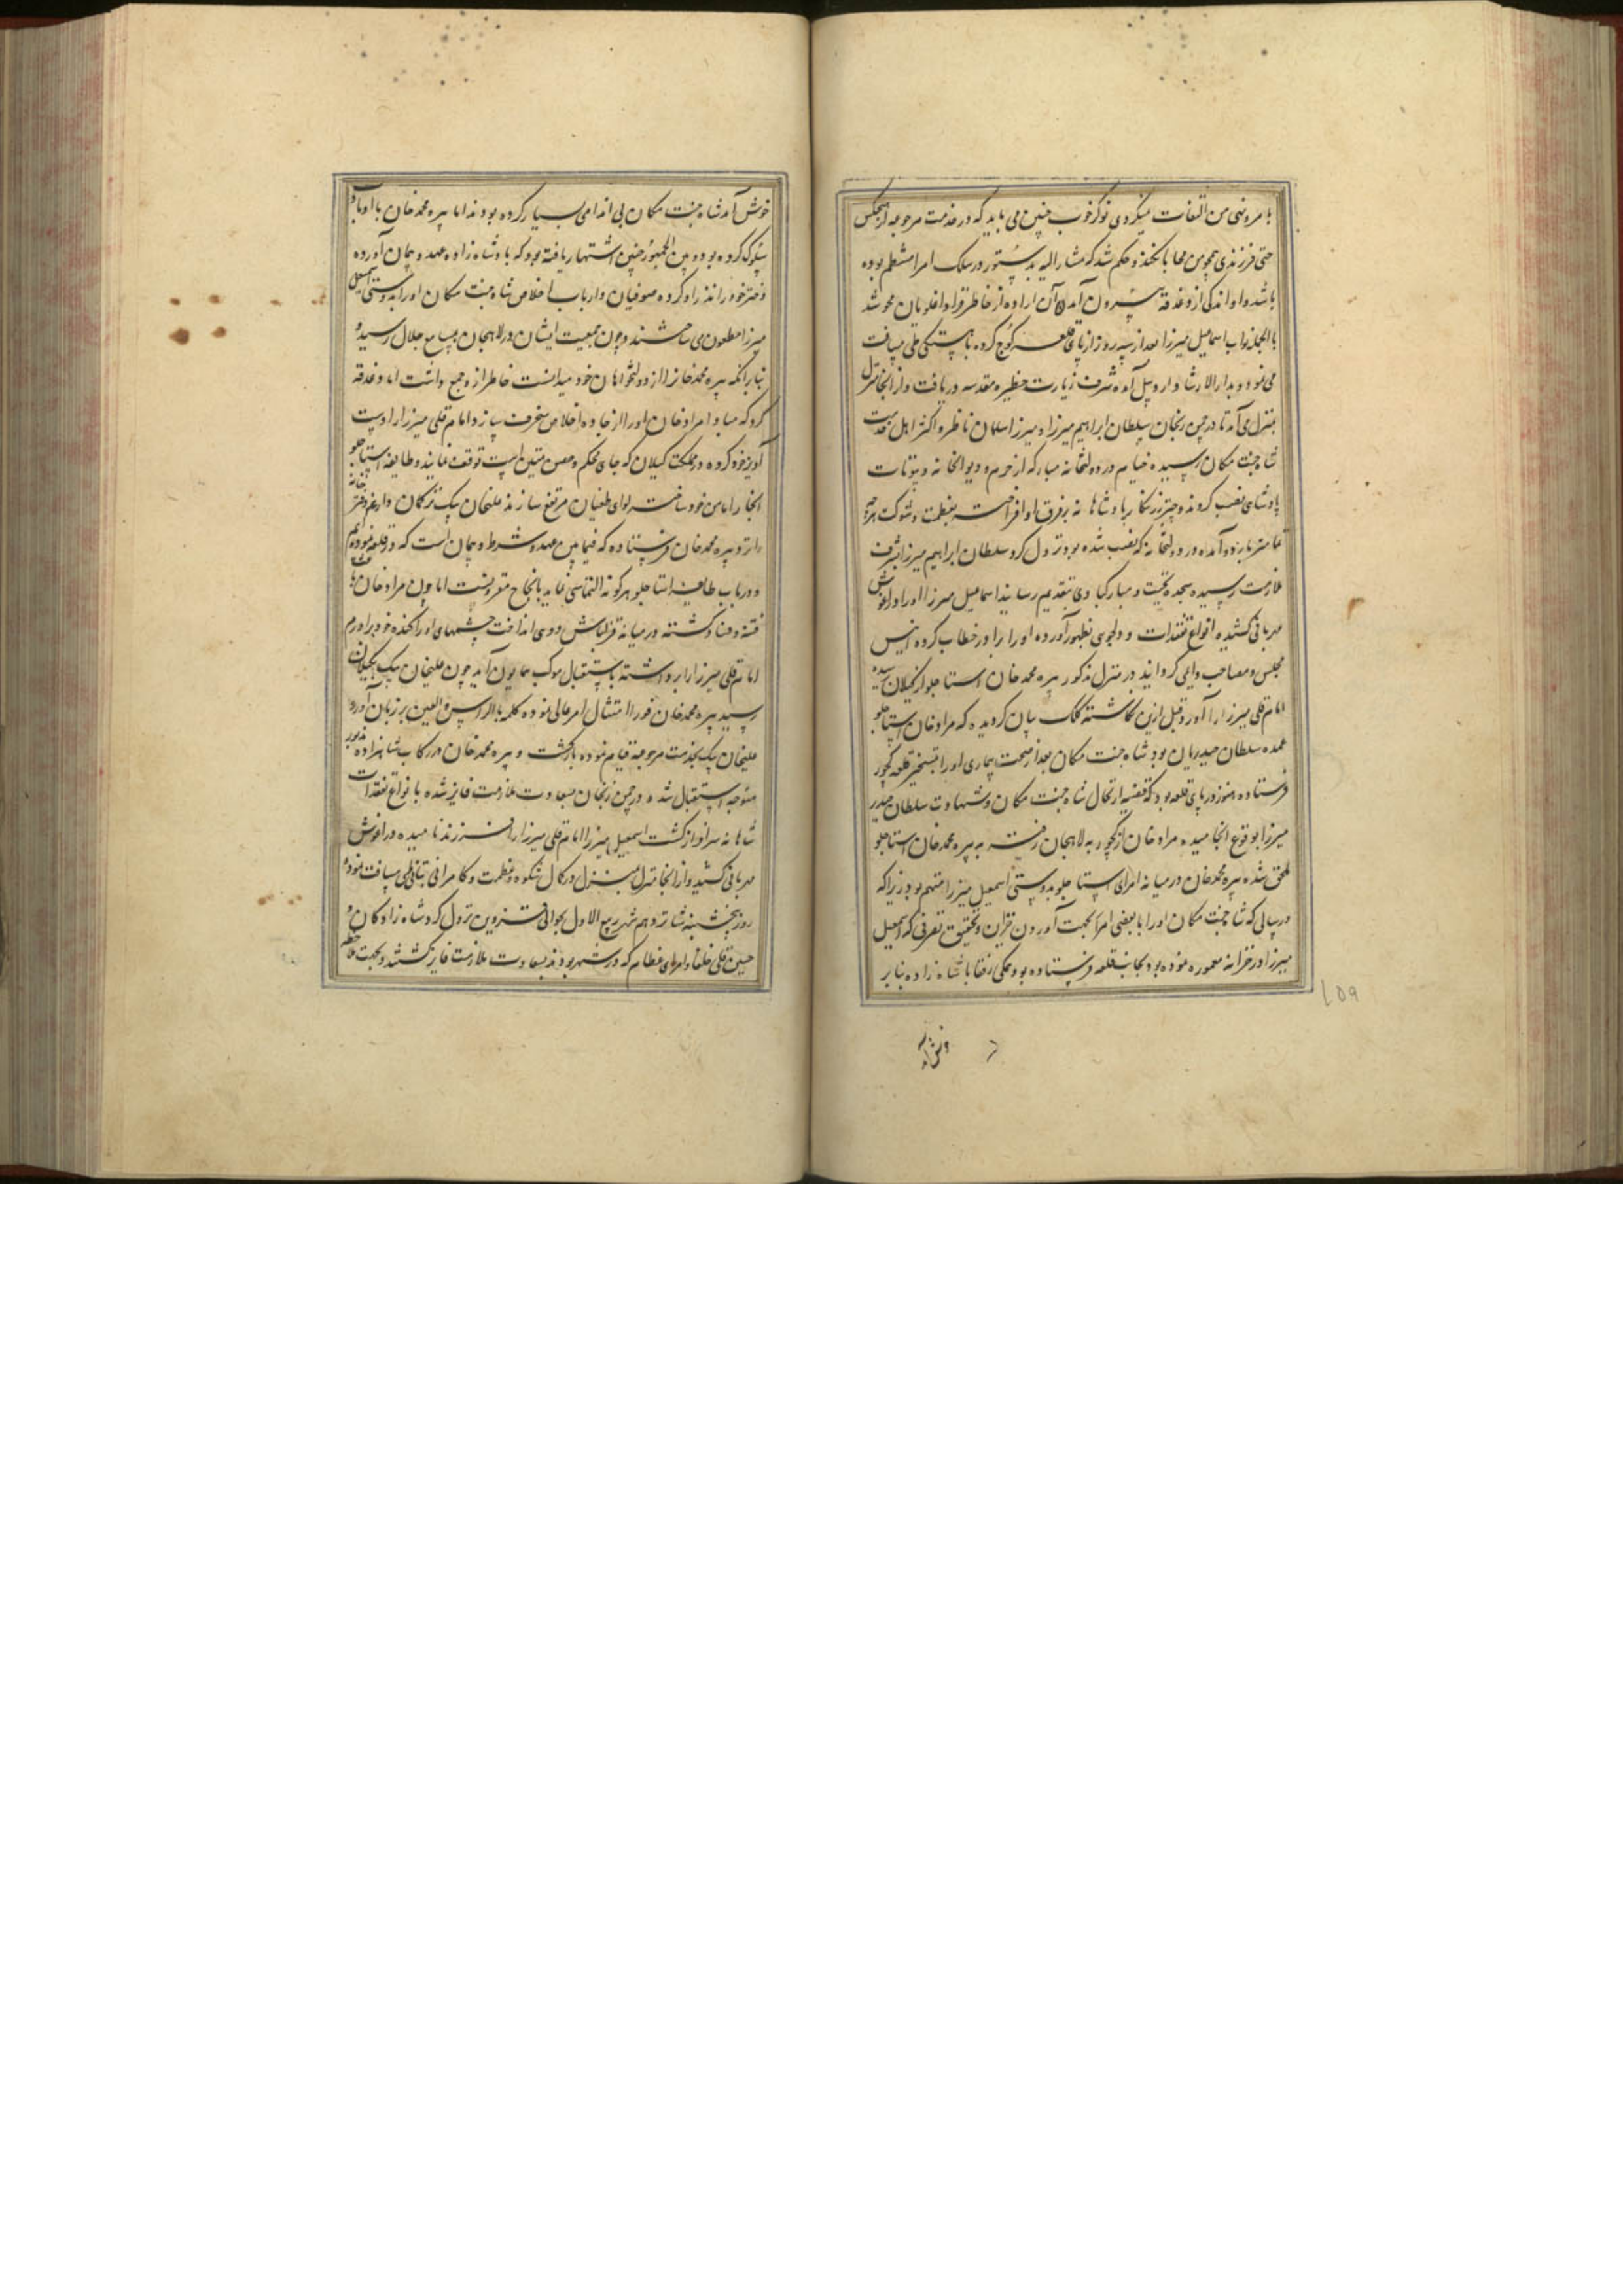 با مر و نهی من التفات میکردی نوکر خوب چنین می باید که در خدمت مرجوعه از هیچکس
حتی فرزندی همچو من محابا نکند و حکم شد که مشار الیه بدستور در سلک امرا منتظم بوده
باشد و او اندکی از دغدغه بیرون آمد و آن اراده از خاطر قرا داغلویان محو شد
بالجمله نواب اسماعیل میرزا بعد از سه روز از پای قلعه کوچ کرده باهستگی طی مسافت
می نمود و بدار الارشاد اردبیل آمده شرف زیارت حظیره مقدسه دریافت و از آنجا منزل
بمنزل می آمد تا در چمن زنجان سلطان ابراهیم میرزا و میرزا سلمان ناظر و اکثر اهل خدمت
شاه جنت مکان رسیده خیام و دولتخانه مبارکه از حرم و دیوانخانه و بیوتات
پادشاهی نصب کردند و چتر زرنگار پادشاهانه بر فرق او افراخته بعظمت و شوکت هر چه
تمامتر باردو آمده در دولتخانه که نصب شده بود نزول کرد سلطان ابراهیم میرزا بشرف
ملازمت رسیده سجده تحیت و مبارکبادی بتقدیم رسانید اسماعیل میرزا او را در آغوش
مهربانی کشیده انواع تفقدات و دلجوی بظهور آورده او را برادر خطاب کرده انیس
مجلس و مصاحب دایمی گردانید در منزل مذکور پیره محمد خان استاجلو از گیلان رسیده
امامقلی میرزا را آورد قبل ازین نگاشته کلک بیان گردیده که مراد خان استاجلو
عمده سلطان حیدریان بود شاه جنت مکان بعد از صحت بیماری او را بتسخیر قلعه کجور
فرستاده هنوز در پای قلعه بود که قضیه ارتحال شاه جنت مکان و شهادت سلطان حیدر
میرزا بوقوع انجامیده مراد خان از کجور به لاهجان رفته به پیره محمد خان استاجلو
ملحق شده پیره محمد خان در میانه امرای استاجلو بدوستی اسمعیل میرزا متهم بود زیرا که
در سالی که شاه جنت مکان او را با بعضی امرا بجهت آوردن خزاین و تحقیق تصرفی که اسمعیل
میرزا در خزانه معموره نموده بود بجانب قلعه فرستاده بود همگی رفقا با شاهزاده بنابر
خوش آمد شاه جنت مکان بی اندامی بسیار کرده بودند اما پیره محمد خان با او بآداب
سلوک کرده بود و بین الجمهور چنین اشتهار یافته بود که با شاهزاده عهد و پیمان آورده
دختر خود را نذر او کرده صوفیان و ارباب اخلاص شاه جنت مکان او را بدوستی اسمعیل
میرزا مطعون می ساختند و چون جمعیت ایشان در لاهجان بمسامع جلال رسیده
بنابر آنکه پیره محمد خان را از دولتخواهان خود میدانست خاطر از و جمع داشت اما دغدغه
کرد که مبادا مراد خان او را از جاده اخلاص منحرف سازد و امامقلی میرزا را دست
آویز خود کرده در مملکت گیلان که جای محکم و حصن متین است توقف نمایند و طایفه استاجلو
آنجا را مامن خود ساخته لوای طغیان مرتفع سازند علیخان بیک ترکمان داروغه دفتر خانه
را نزد پیره محمد خان فرستاده که فیما بین عهد و شرط و پیمان است که در قلعه نموده ایم
و در باب طایفه استاجلو هر گونه التماسی نماید بانجاح مقرونست اما چون مراد خان باعث
فتنه و فساد گشته در میانه قزلباش دوی انداخت چشمهای او را کنده خود برادرم
امامقلی میرزا را برداشته باستقبال موکب همایون آید چون علیخان بیک بگیلان
رسید پیره محمد خان فورا امتثال امر عالی نموده کلمه بالراس و العین بر زبان آورد
علیخان بیک بخدمت مرجوعه قیام نموده بازگشت و پیره محمد خان در رکاب شاهزاده مذکور
متوجه استقبال شده در چمن زنجان بسعادت ملازمت فایز شده بانواع تفقدات
شاهانه سرافراز گشت اسمعیل میرزا امامقلی میرزا را فرزند نامیده در آغوش
مهربانی کشید و از آنجا منزل بمنزل در کمال شکوه و عظمت و کامرانی بتانی طی مسافت نموده
روز پنجشنبه شانزدهم شهر ربیع الاول بحوالی قزوین نزول کرد شاهزادگان و
حسین قلی خلفا و امرای عظام که در شهر بودند بسعادت ملازمت فایز گشتند و بجهت ملاحظه
خوش آمد
۱۵۹